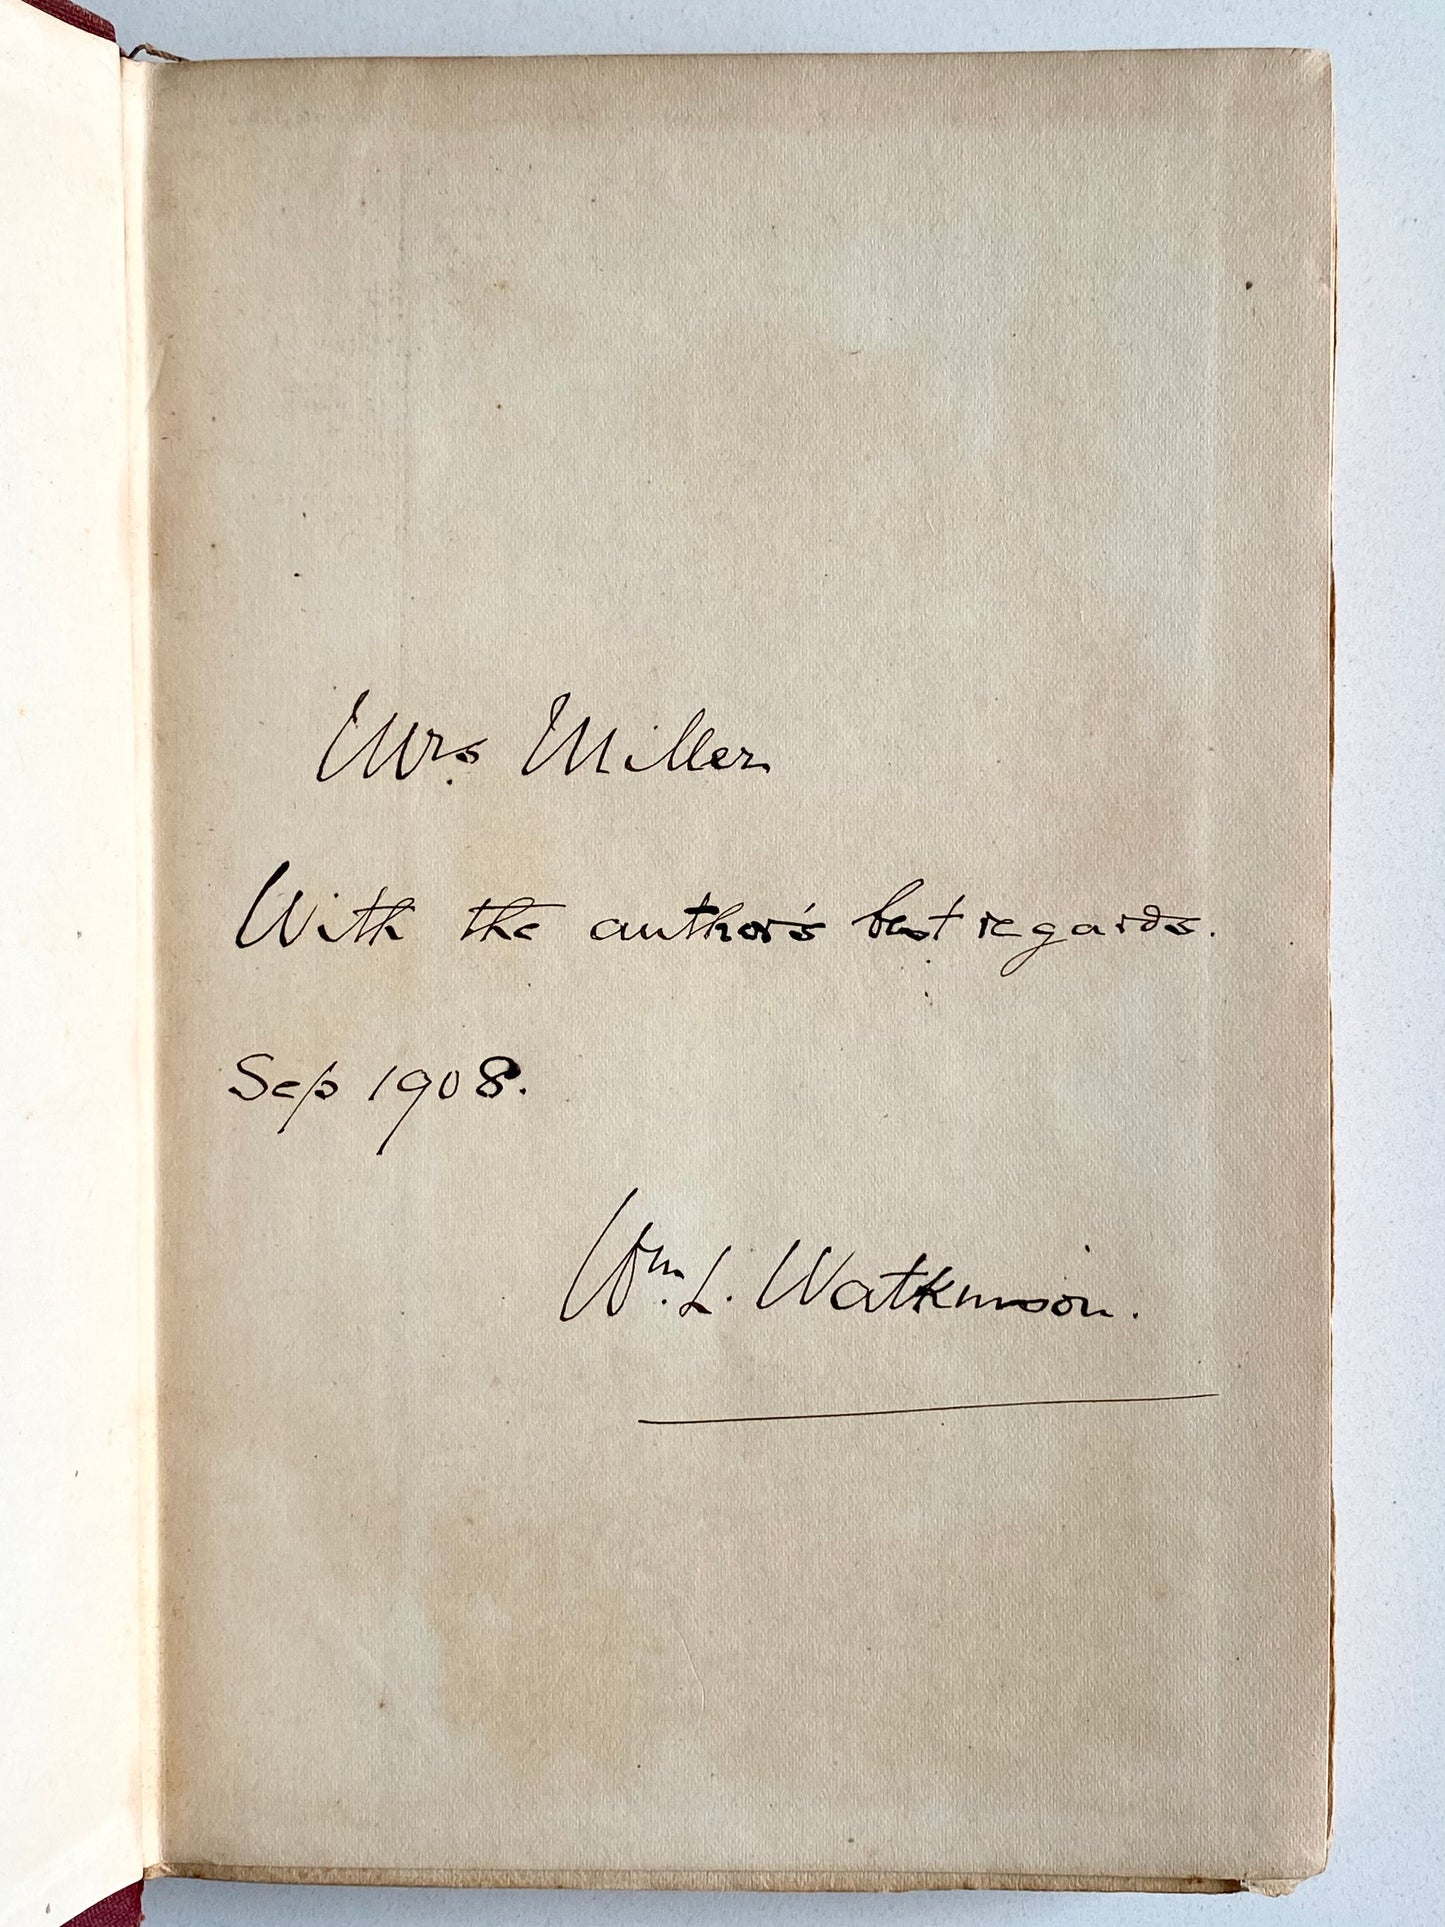 Mrs. Miller
With the author's best regards.
Sep 1908.
Wm. L. Watkinson.